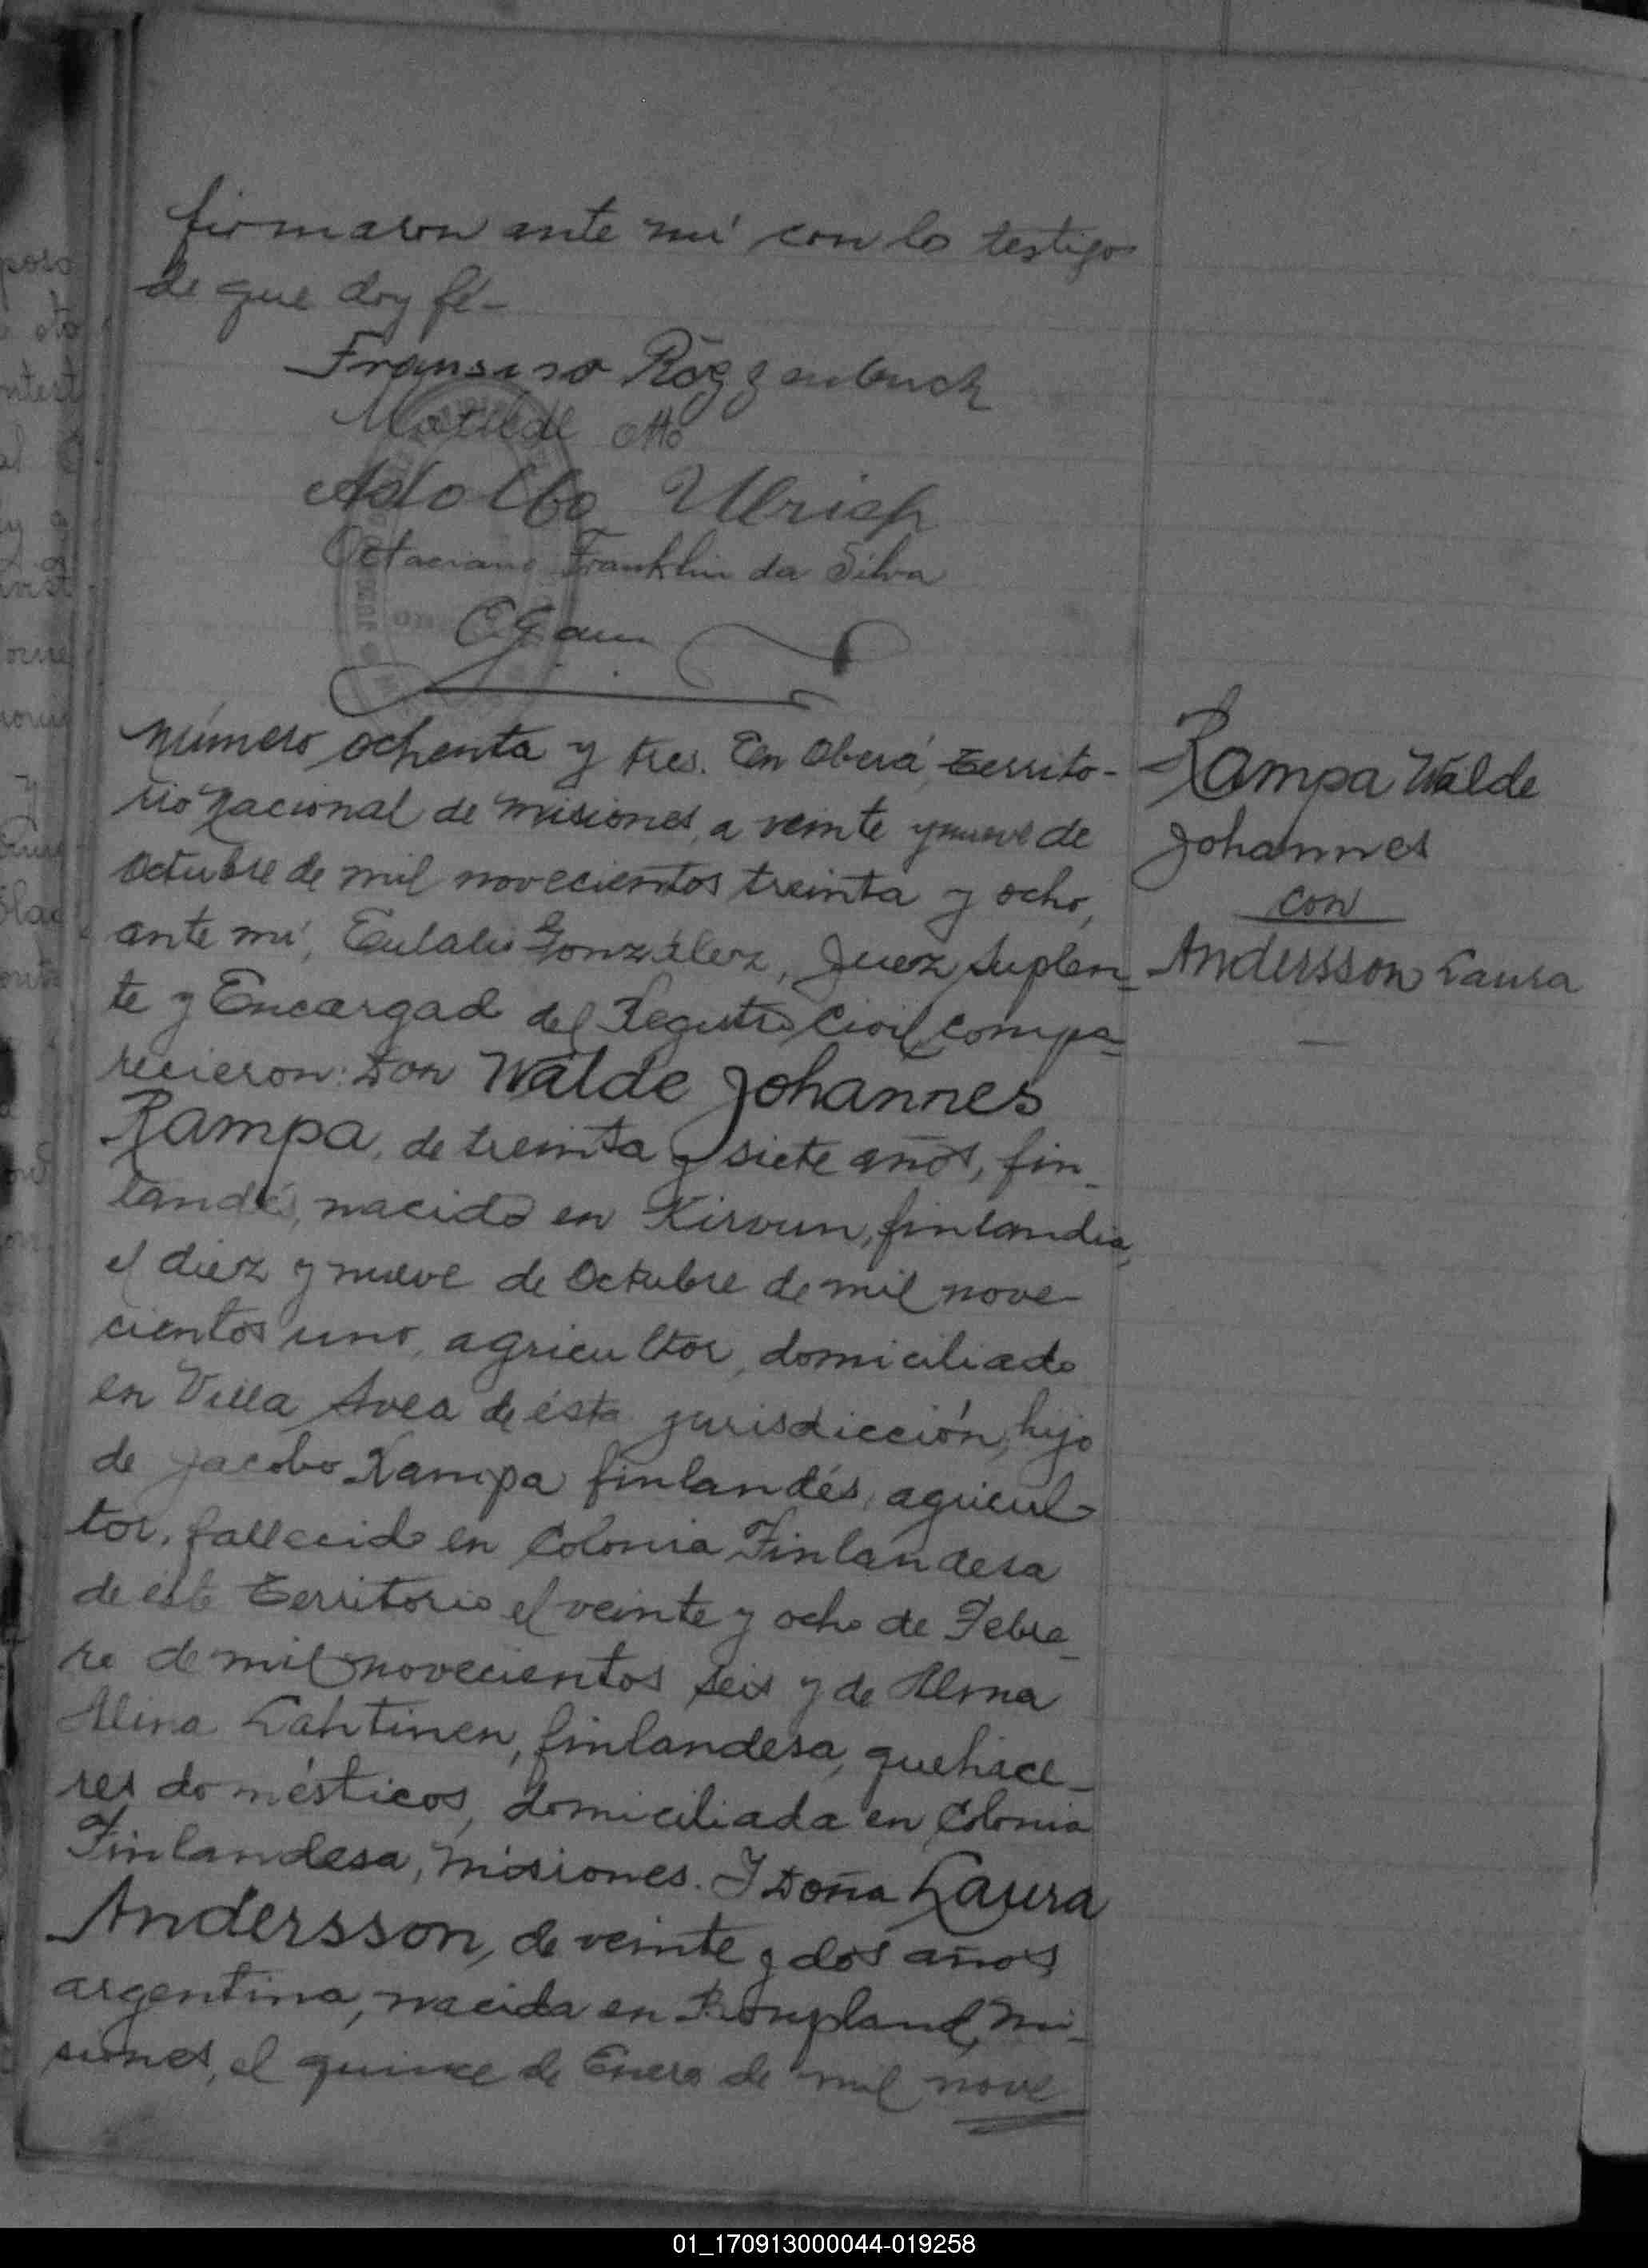 firmaron ante mí con los testigos
de que doy fé-
Fransisco
Matilde Otto
Adolfo Ulrich
Octaciano Franklin da Silva
Número ochenta y tres. En Oberá, Territo-
rio Nacional de Misiones, a veinte y nueve de
Octubre de mil novecientos treinta y ocho,
ante mí, Eulalio González, Juez Suplen-
te y Encargado del Registro Civil, compa-
recieron: Don Walde Johannes
Rampa, de treinta y siete años, fin-
landés, nacido en Kirvun, finlandia,
el diez y nueve de Octubre de mil nove-
cientos uno, agricultor, domiciliado
en Villa Svea de ésta jurisdicción, hijo
de Jacobo Rampa finlandés, agricul-
tor, fallecido en Colonia Finlandesa
de este Territorio el veinte y ocho de Febre-
ro de mil novecientos seis y de Alma
Alina Lahtinen, finlandesa, quehace-
res domésticos, domiciliada en Colonia
Finlandesa, Misiones. Y Doña Laura
Andersson, de veinte y dos años
argentina, nacida en Bonpland, Mi-
siones, el quince de Enero de mil nove
Rampa Walde
Johannes
con
Andersson Laura
01_170913000044-019258